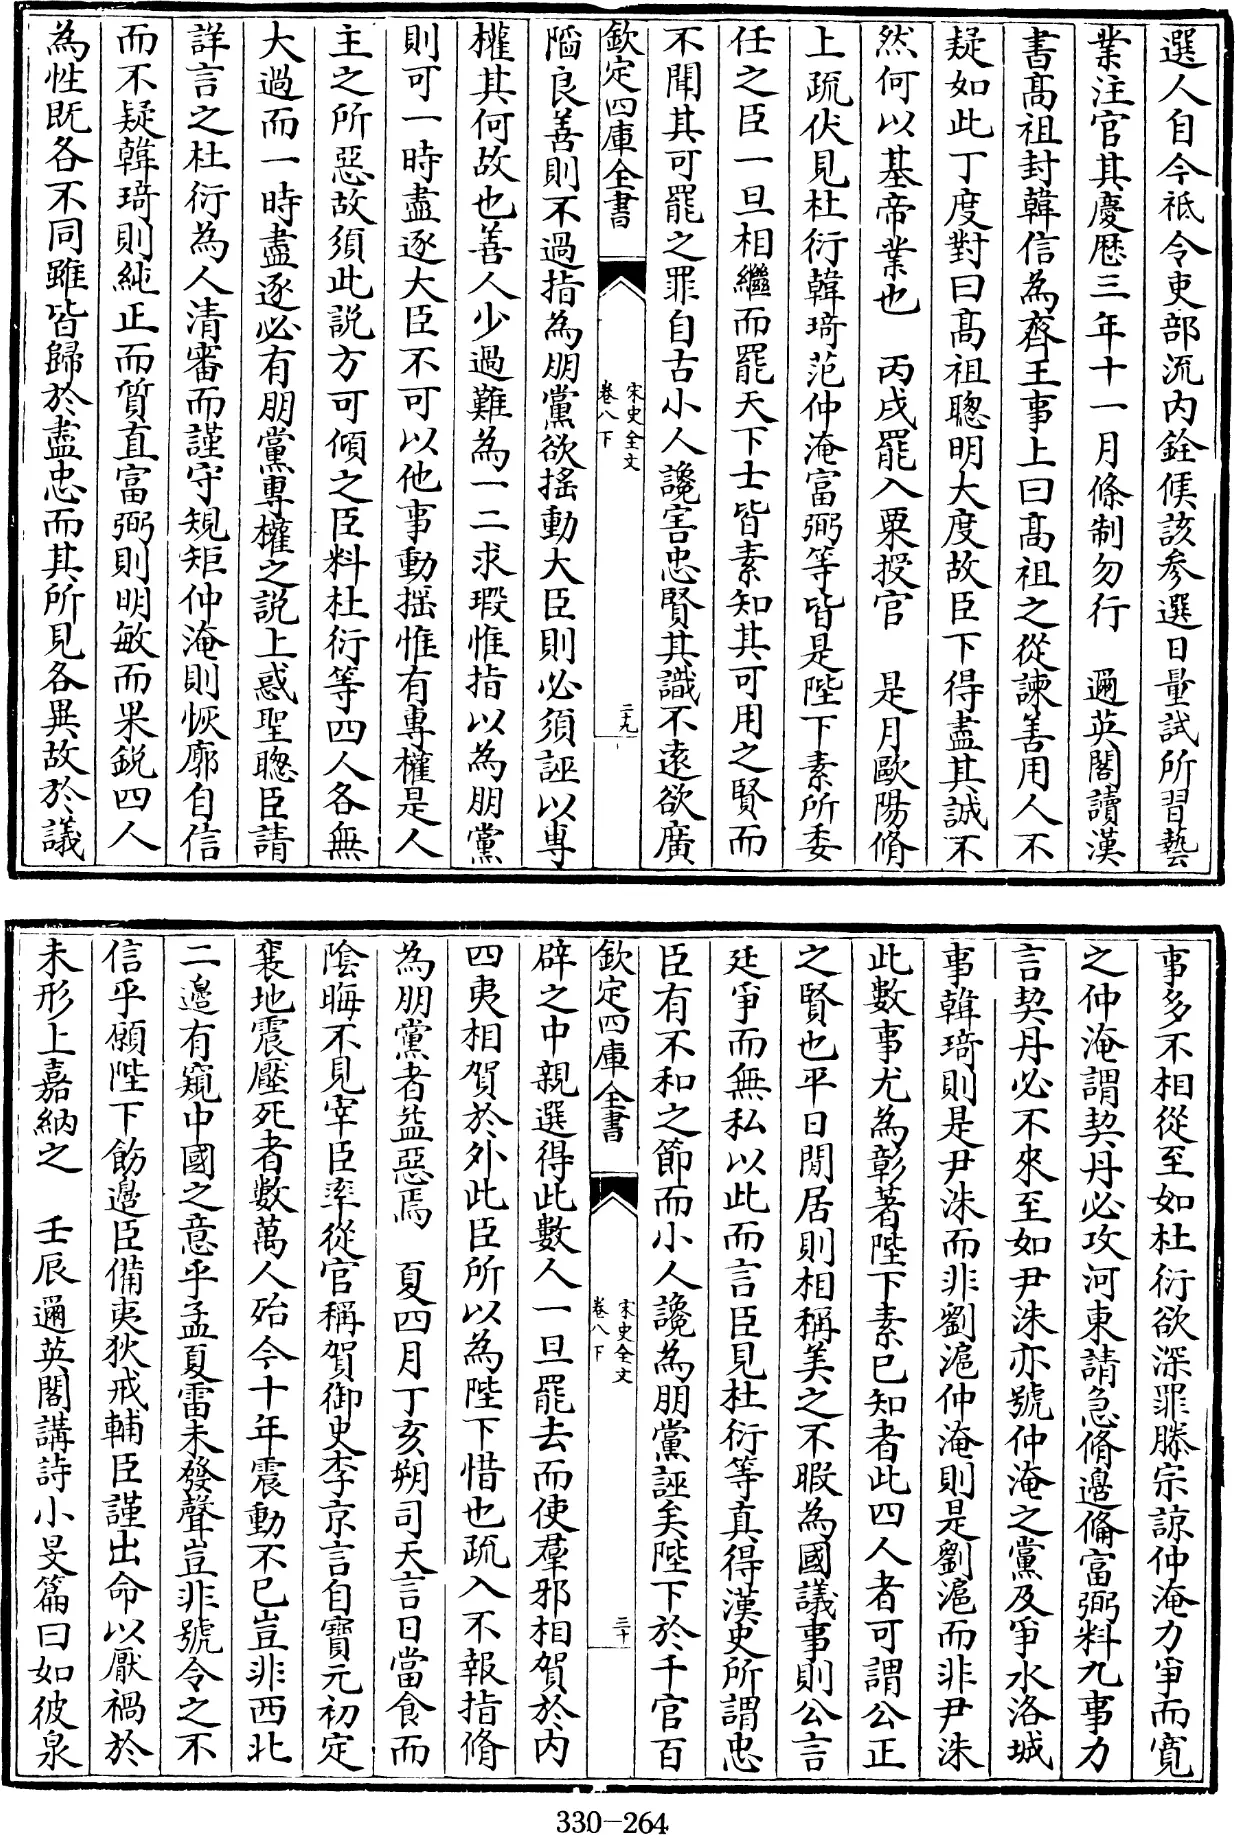 選人自今祗令吏部流内銓候該參選日量試所習藝
業注官其慶歴三年十一月條制勿行　邇英閣讀漢
書髙祖封韓信為齊王事上曰髙祖之從諫善用人不
疑如此丁度對曰髙祖聰明大度故臣下得盡其誠不
然何以基帝業也　丙戌罷入粟授官　是月歐陽脩
上疏伏見杜衍韓琦范仲淹富弼等皆是陛下素所委
任之臣一旦相繼而罷天下士皆素知其可用之賢而
不聞其可罷之罪自古小人讒害忠賢其識不遠欲廣
欽定四庫全書
宋史全文
卷八下
二十九
陷良善則不過指為朋黨欲揺動大臣則必須誣以專
權其何故也善人少過難為一二求瑕惟指以為朋黨
則可一時盡逐大臣不可以他事動揺惟有專權是人
主之所惡故須此説方可傾之臣料杜衍等四人各無
大過而一時盡逐必有朋黨專權之説上惑聖聰臣請
詳言之杜衍為人清審而謹守規矩仲淹則恢廓自信
而不疑韓琦則純正而質直富弼則明敏而果鋭四人
為性既各不同雖皆歸於盡忠而其所見各異故於議
事多不相從至如杜衍欲深罪滕宗諒仲淹力爭而寛
之仲淹謂契丹必攻河東請急脩邊備富弼料九事力
言契丹必不來至如尹洙亦號仲淹之黨及爭水洛城
事韓琦則是尹洙而非劉滬仲淹則是劉滬而非尹洙
此數事尤為彰著陛下素已知者此四人者可謂公正
之賢也平日閒居則相稱美之不暇為國議事則公言
廷爭而無私以此而言臣見杜衍等真得漢史所謂忠
臣有不和之節而小人讒為朋黨誣矣陛下於千官百
欽定四庫全書
宋史全文
卷八下
三十
辟之中親選得此數人一旦罷去而使羣邪相賀於内
四夷相賀於外此臣所以為陛下惜也疏入不報指脩
為朋黨者益惡焉　夏四月丁亥朔司天言日當食而
陰晦不見宰臣率從官稱賀御史李京言自寶元初定
襄地震壓死者數萬人殆今十年震動不已豈非西北
二邊有窺中國之意乎孟夏雷未發聲豈非號令之不
信乎願陛下飭邊臣備夷狄戒輔臣謹出命以厭禍於
未形上嘉納之　壬辰邇英閣講詩小旻篇曰如彼泉
330-264